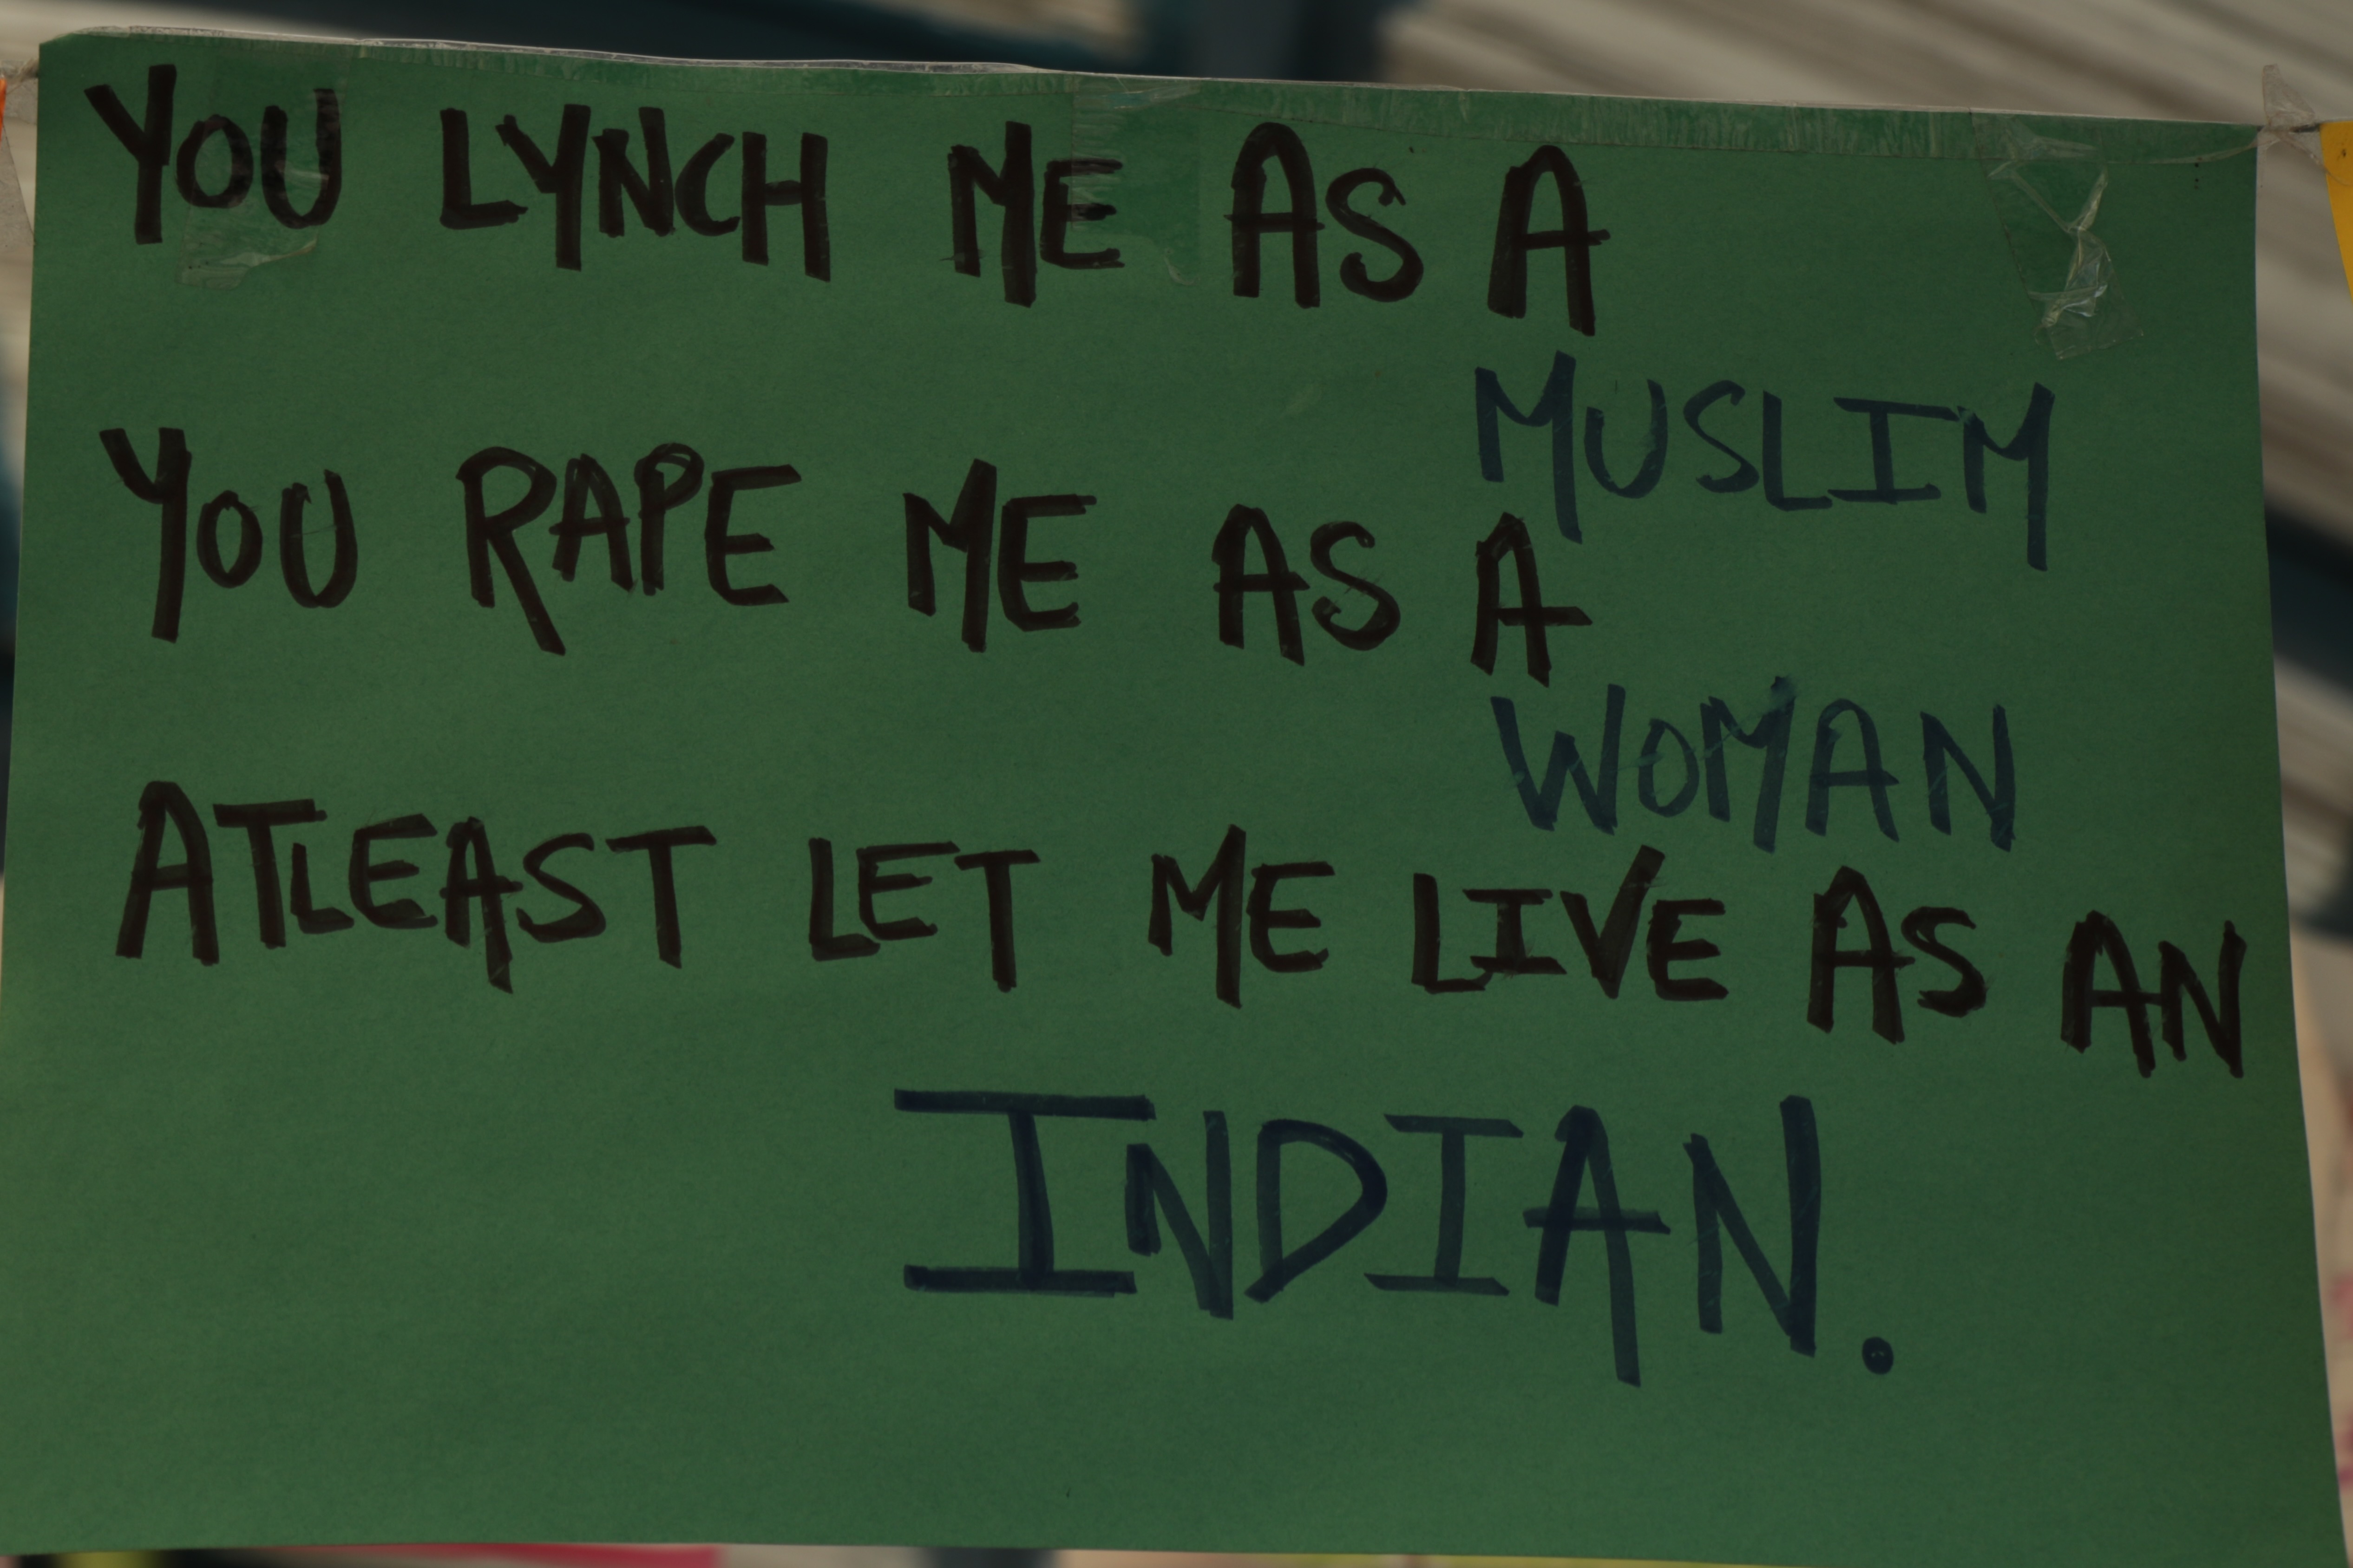 YOU LYNCH ME AS A
MUSLIM
YOU RAPE ME AS A
WOMAN
ATLEAST LET ME LIVE AS AN
INDIAN.